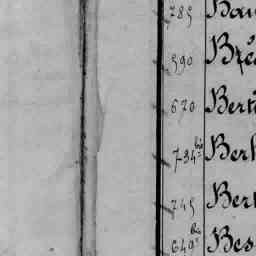 785 Bau
590 Bré
670 Bert
734 bis Berl
745 Bert
649 bis Bes